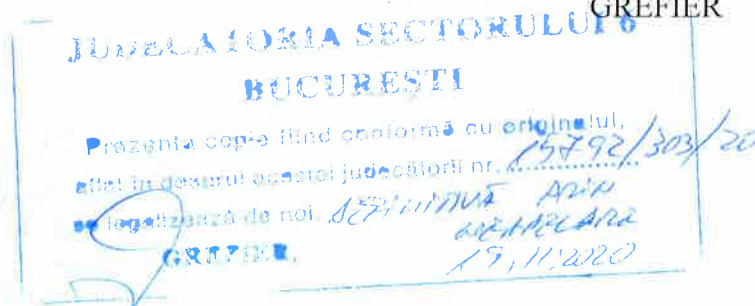 GREFIER
JUDECATORIA SECTORULUI 6
BUCURESTI
Prezenta copie fiind conformă cu originalul,
aflat in dosarul acestei judecătorii nr. 15792/303/20
se legalizează de noi. DEFINITIVĂ PRIN
NEAPELARE
GREFIER, 19.11.2020